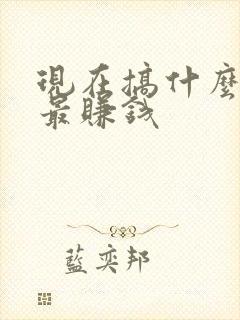 現在搞什麼
最賺錢
藍奕邦